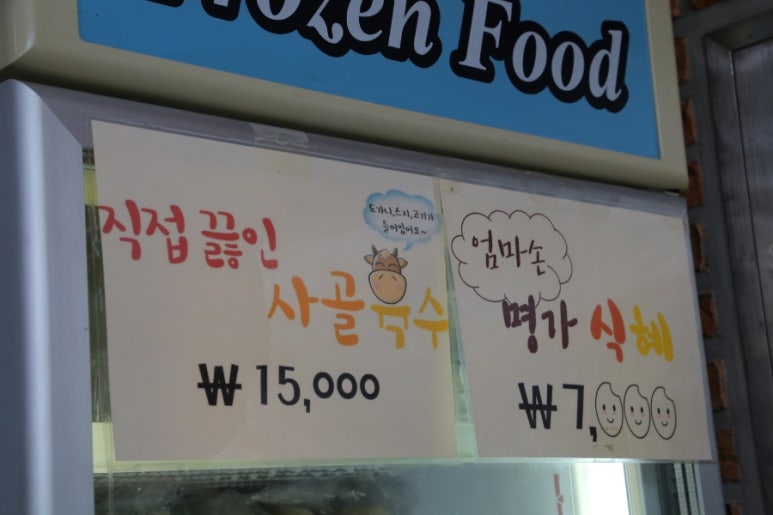 Frozen Food
직접 끓인
도가니,스지,고기가
들어있어요~
사골육수
₩ 15,000
엄마손
명가 식혜
₩ 7,000